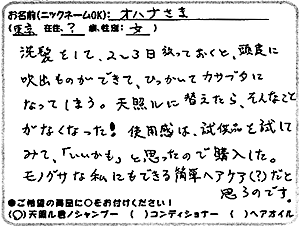 お名前(ニックネームOK): オハナさま
(東京 在住、? 歳、性別: 女)
洗髪をして、2~3日放っておくと、頭皮に
吹出ものができて、ひっかいてカサブタに
なってしまう。天照ルに替えたら、そんなこと
がなくなった! 使用感は、試供品を試して
みて、「いいかも」と思ったので購入した。
モノグサな私にもできる簡単ヘアケア(?)だと
思うのです。
●ご希望の商品に○をお付けください!
(○)天照ル君のシャンプー ( )コンディショナー ( )ヘアオイル